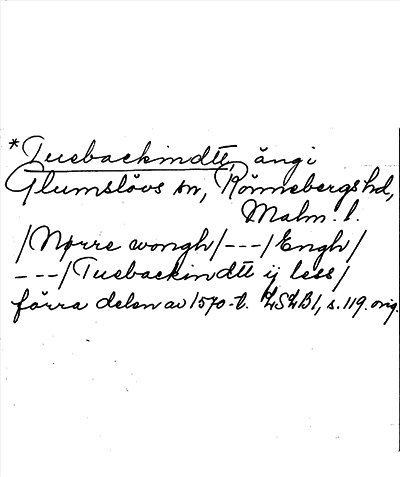 *Tuebackindtt, äng i
Glumslövs sn, Rönnebergs hd,
Malm. l.
/Nørre wongh/---/Engh/
---/Tuebackindtt ij less/
förra delen av 1570-t. LSLB1, s. 119. orig.